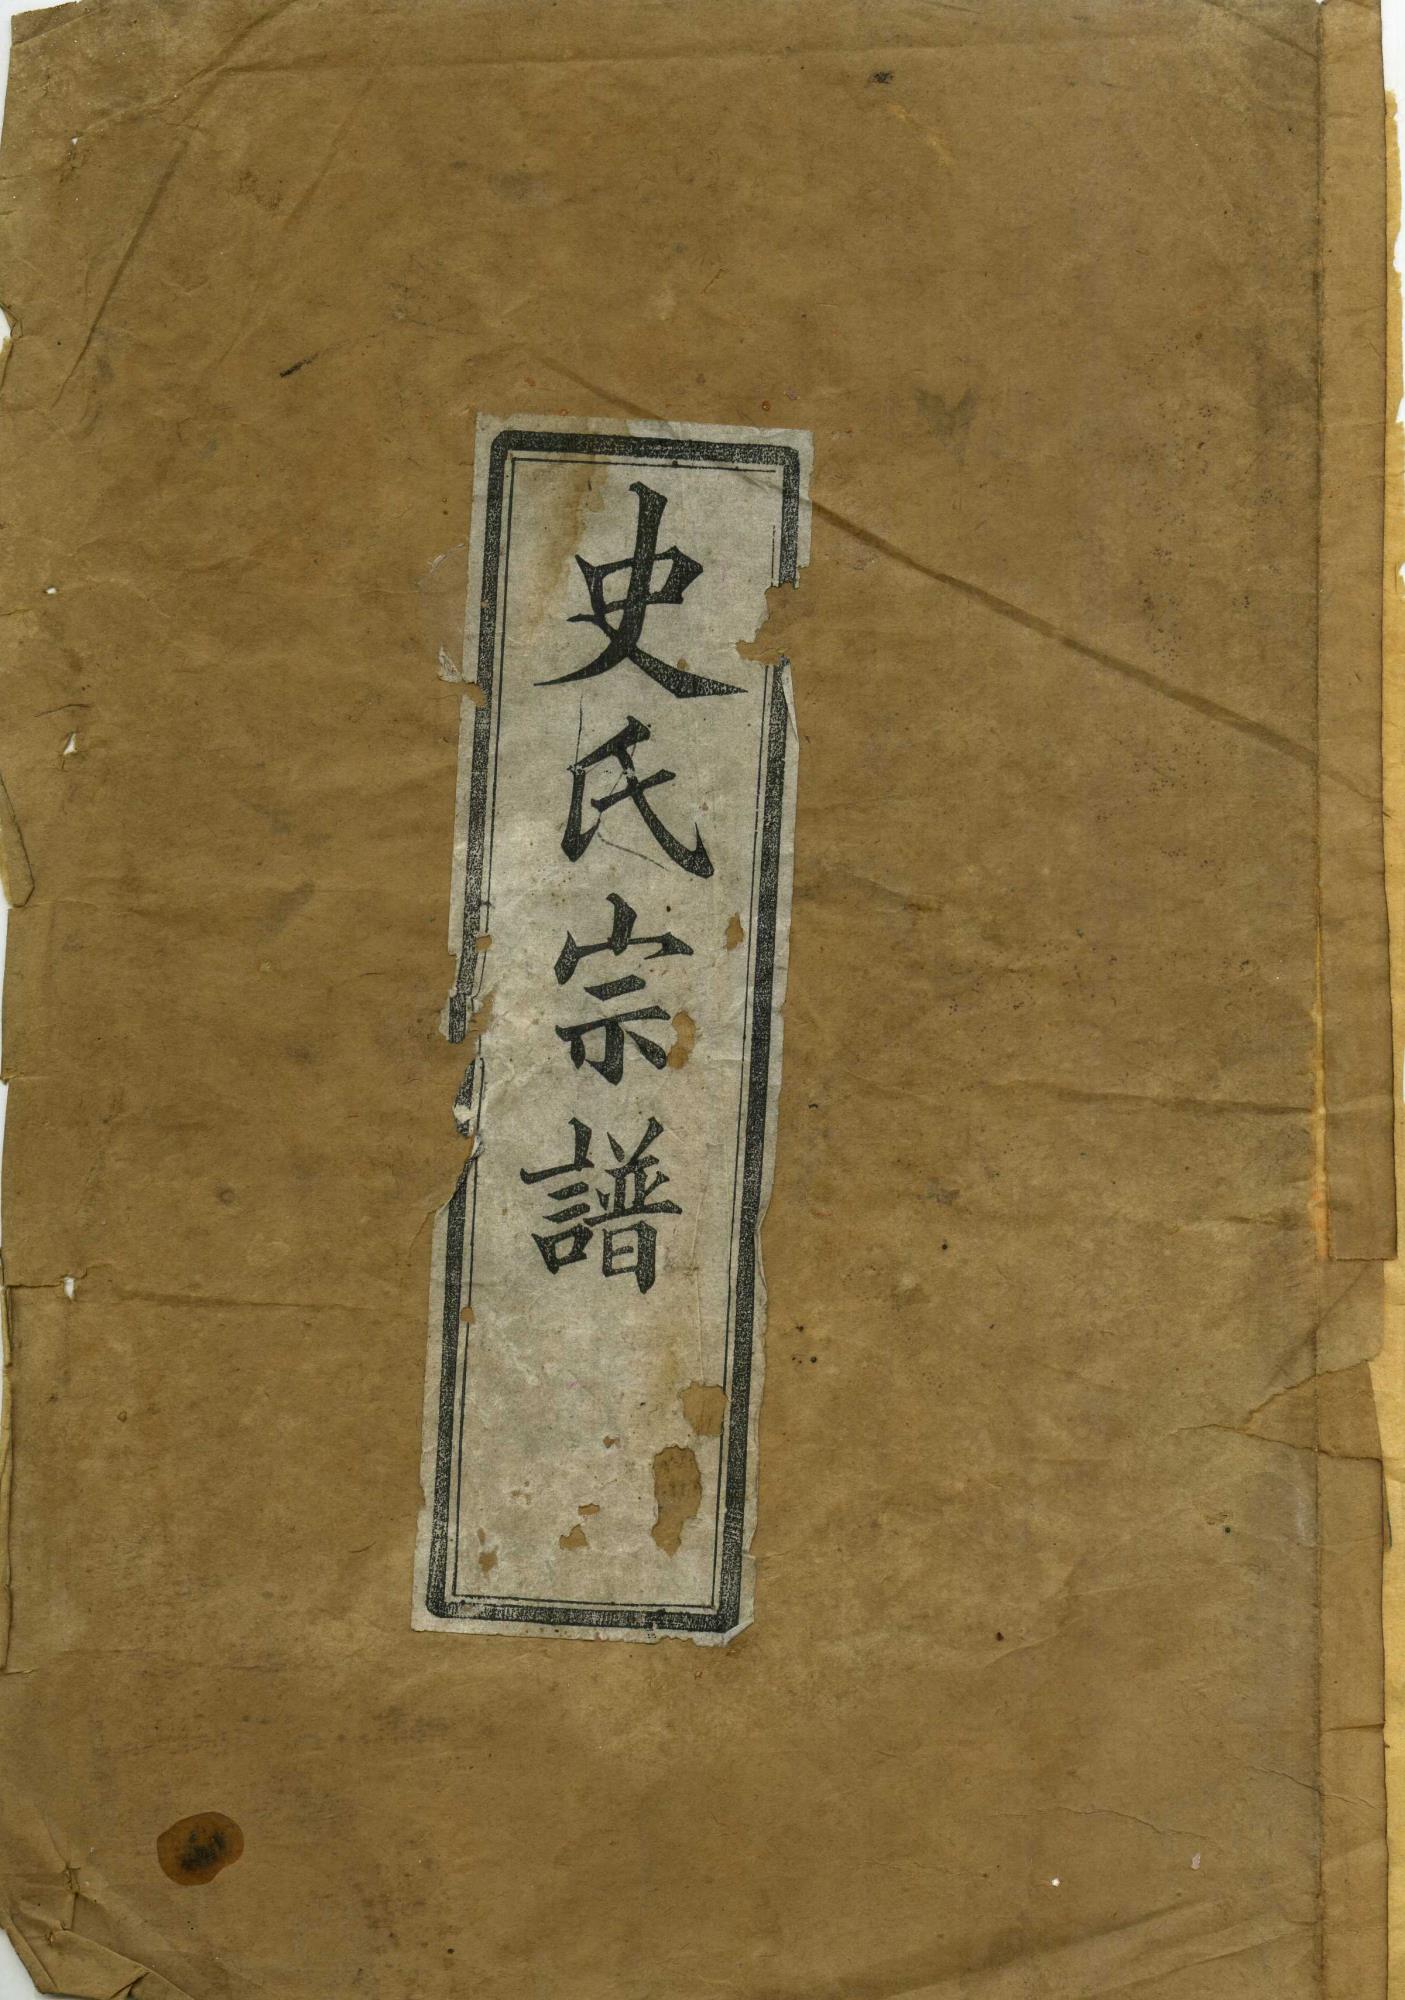 史氏宗譜